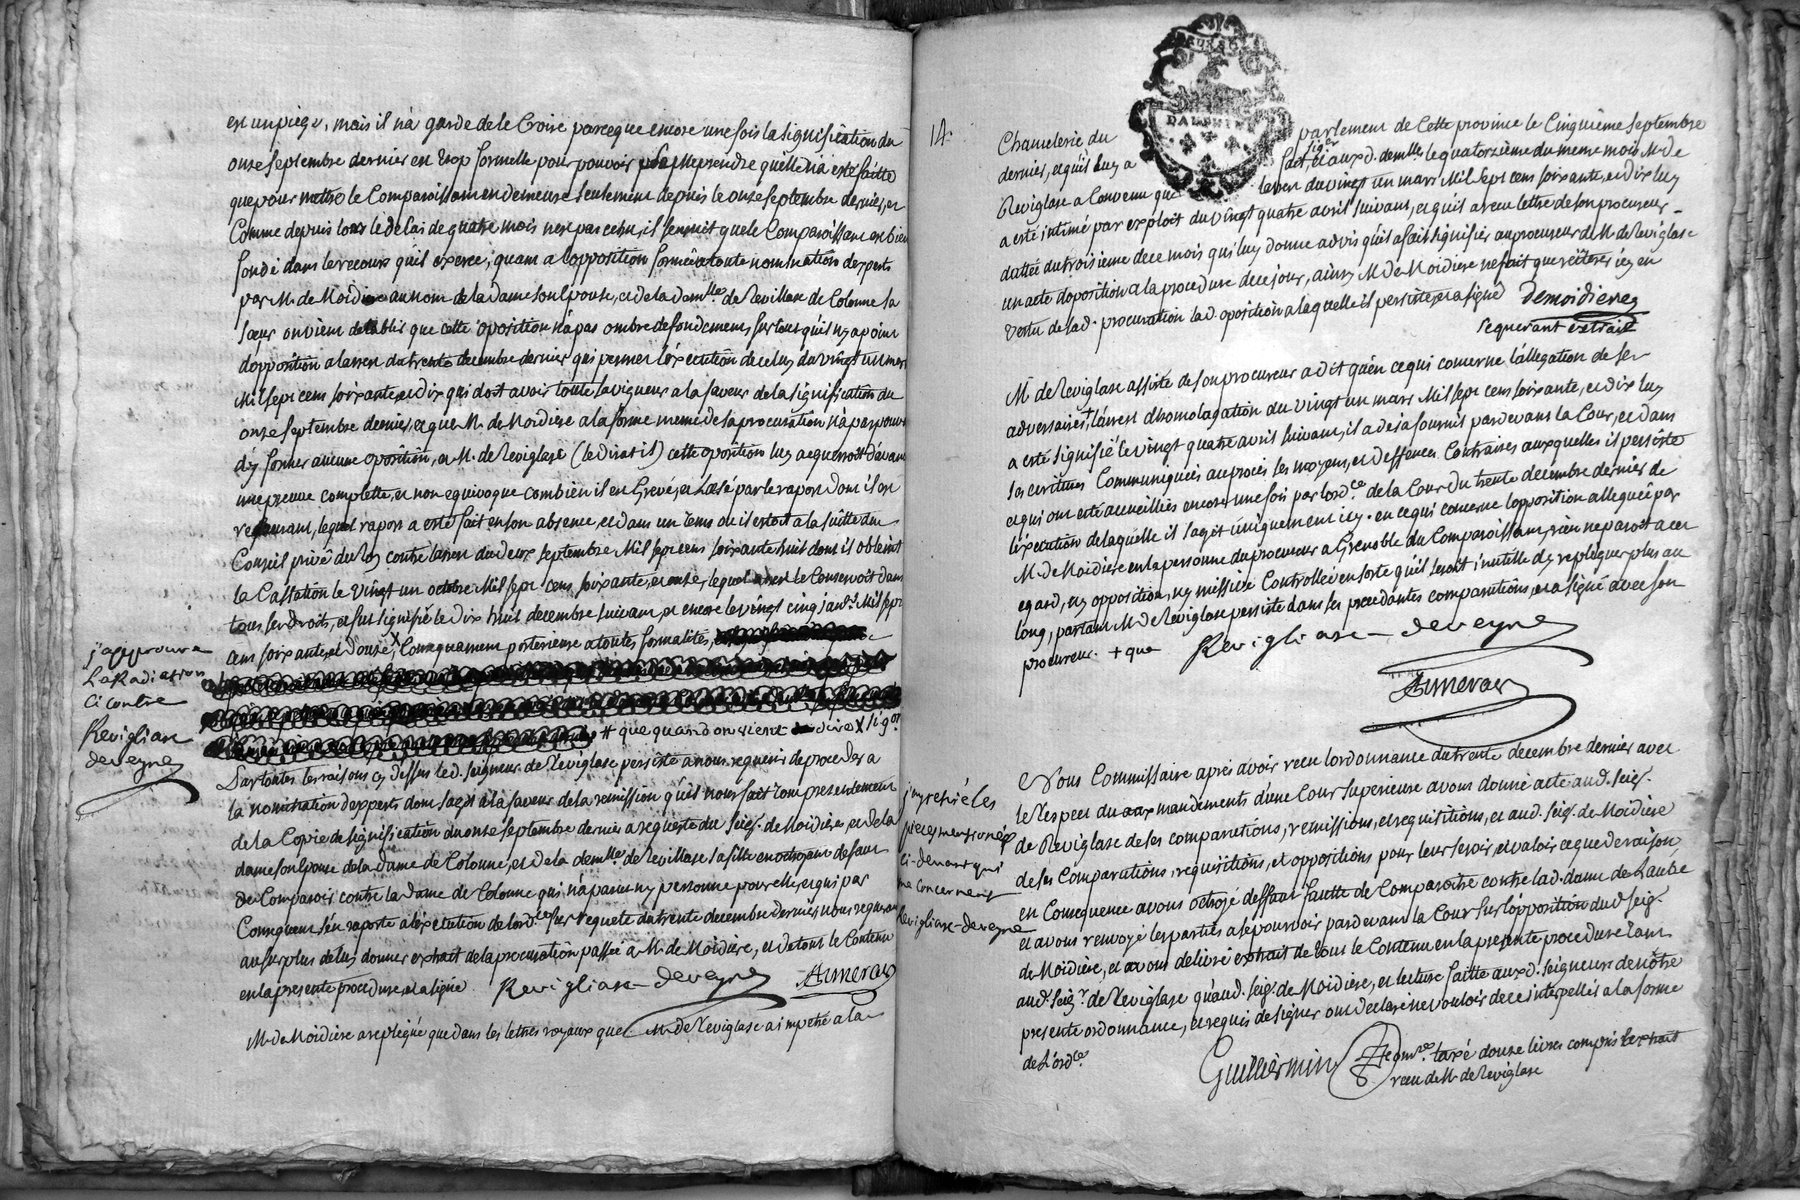 en un piege, mais il n'a garde de le Croire parceque encore une fois la signification du
onze septembre dernier en trop formelle pour pouvoir meprendre quelle n'a esté faitte
que pour mettre le Comparoissant en demeure seulement depuis le onze septembre dernier, et
Comme depuis lors le delai de quatre mois nest pas echu, il sensuit que le Comparoissant est bien
fondé dans le recours qu'il exerce, quant a l'opposition formée a toute nomination d'experts
par Mr. de Moidiere au nom de la dame son Epouse, et de la damlle. de Revillase de Colonne sa
sœur on vient detablir que cette oposition n'a pas ombre de fondement, surtout qu'il ny a point
d'opposition a larret du trente decembre dernier qui permet l'execution de celuy du vingt un mars
Mil sept cens soixante, et dix qui doit avoir toutte sa vigueur a la faveur de la signification du
onze septembre dernier, et que Mr. de Moidiere a la forme meme de sa procuration n'a pas pouvoir
d'y former aucune oposition, et Mr. de Reviglase (le diroit il) cette oposition luy acquerroit d'avance
une preuve complette, et non equivoque combien il en Grevé, et Lezé par le raport dont il en
recourant, lequel raport a esté fait en son absence, et dans un tems ou il estoit a la suitte du
Conseil privé du Roy contre larret du deux septembre Mil sept cens soixante huit dont il obtient
la Cassation le vingt un octobre Mil sept cens soixante, et onze, lequel arrest le Conservoit dans
tous ses droits, et fut signifié le dix huit decembre suivant, et encore le vingt cinq janr. Mil sept
cens soixante, et douze, X Consequament posterieure a toutes formalités,
j'approuve
La Radiation
Ci contre
Revigliase
deveyne
# que quand on vient a dire X sigon.
Par toutes les raisons cy dessus led. seigneur de Reviglase persiste a nous requerir de proceder a
la nomination d'experts dont sagit a la faveur de la remission qu'il nous fait tout presentement
de la Copie de signification du onze septembre dernier a requeste du seigr. de Moidiere, et de la
dame son Epouse de la Dame de Colonne, et de la demlle. de Revillase sa fille en octroyant defaut
de Comparoir contre la Dame de Colonne qui n'a paru ny personne pour elle, et qui par
Consequent s'en raporte a l'execution de lordce. sur requete du trente decembre dernier nous requerant
au surplus de luy donner extrait de la procuration passée a Mr. de Moidiere, et de tout le Contenu
en la presente procedure, et a signé. Revigliase-deveyne Aumeras
Mr. de Moidiere a repliqué que dans les lettres royaux que Mr. de Reviglase a impetré a la
14.
Chancelerie du parlement de Cette province le Cinquieme septembre
dernier, et qu'il luy a fait signer et aux d. demlles. le quatorzieme du meme mois Mr. de
Reviglase a Convenu que larret du vingt un mars Mil sept cens soixante, et dix luy
a esté intimé par exploit du vingt quatre avril suivant, et qu'il a receu lettre de son procureur
dattée du troisieme de ce mois qui luy donne advis qu'il a fait signifier au procureur de Mr. de Reviglase
un acte doposition a la procedure de ce jour, ainsy Mr. de Moidiere ne fait que reiterer icy en
vertu de sad. procuration lad. oposition a laquelle il persiste, et a signé Demoidiere
requerant extrait
Mr. de Reviglase assisté de son procureur a dit qu'en ce qui concerne lallegation de ses
adversaires + larrest d'homologation du vingt un mars Mil sept cens soixante, et dix luy
a esté signifié le vingt quatre avril suivant, il a deja fournit pardevant la Cour, et dans
ses ecritures Communiquées au procès les moyens, et deffences Contraires auxquelles il persiste
et qui ont esté accueillies encore une fois par lordce. de la Cour du trente decembre dernier de
l'execution de laquelle il s'agit uniquement icy. en ce qui concerne l'opposition alleguée par
Mr. de Moidiere en la personne du procureur a Grenoble du Comparoissant, rien ne paroit a cet
egard, ny opposition, ny missive Controllée en sorte qu'il seroit inutille d'y repliquer plus au
long, partant Mr. de Reviglase persiste dans ses precedantes comparutions, et a signé avec son
procureur. + que Revigliase-deveyne
Aumeras
j'ay retiré les
pieces mentionées
Ci-devant qui
me Concernent
Revigliase-deveyne
Nous Commissaire apres avoir veu lordonnance du trente decembre dernier avec
le Respect du aux mandements d'une Cour superieure avons donné acte aud. seigr.
de Reviglase de ses comparutions, remissions, et requisitions, et aud. seigr. de Moidiere
de ses Comparutions, requisitions, et oppositions pour leur servir, et valoir ce que de raison,
en Consequence avons octroyé deffaut fautte de Comparoitre contre lad. dame de Laube
et avons renvoyé les parties a se pourvoir pardevant la Cour sur l'opposition dud. seigr.
de Moidiere, et avons delivré extrait de tout le Contenu en la presente procedure tant
aud. seigr. de Reviglase qu'aud. seigr. de Moidiere, et lecture faitte auxd. seigneurs de nôtre
presente ordonnance, et requis de signer ont declaré ne vouloir de ce interpellés a la forme
de L'ordce.
Guilliermin Comre. taxé douze livres compris lextrait
receu de Mr. de Reviglase